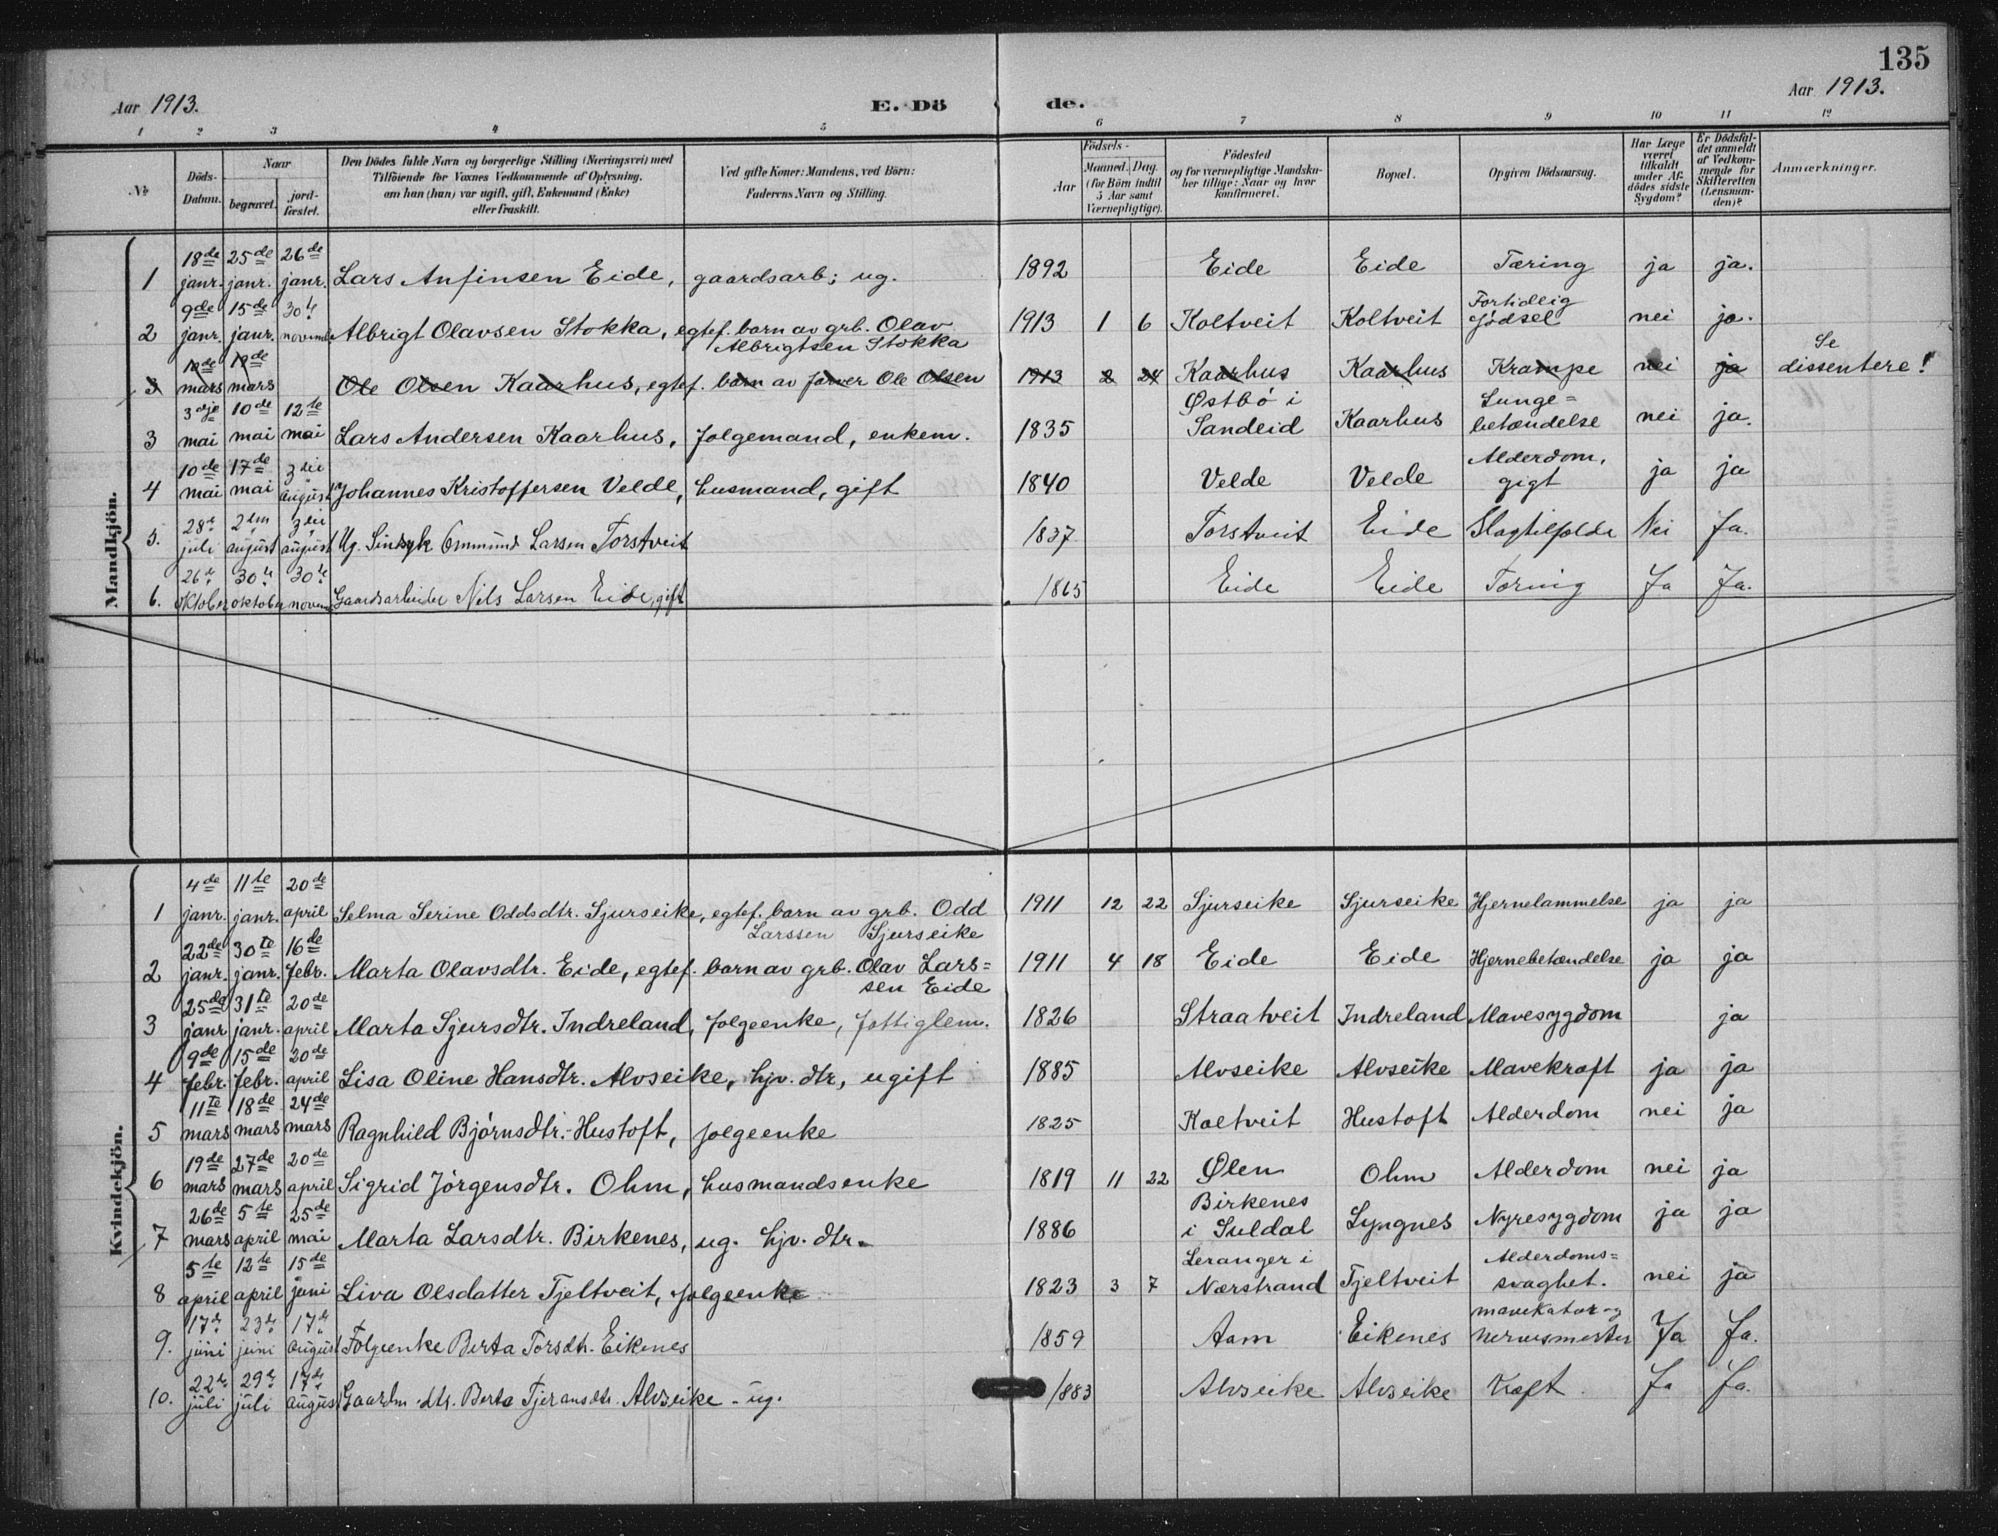 135
Aar 1913. E. Dö de. Aar 1913.
1 2 3 4 5 6 7 8 9 10 11 12
No
Döds-Datum.
Naar
begravet.
jord-fæstet.
Den Dödes fulde Navn og borgerlige Stilling (Næringsvei) med
Tilföiende for Voxnes Vedkommende af Oplysning,
om han (hun) var ugift, gift, Enkemand (Enke)
eller fraskilt.
Ved gifte Koner: Mandens, ved Börn:
Faderens Navn og Stilling.
Födsels-
Aar
Maaned. Dag.
(for Börn indtil
5 Aar samt
Værnepligtige).
Födested
og for værnepligtige Mandska-
ber tillige: Naar og hvor
konfirmeret.
Bopæl.
Opgiven Dödsaarsag.
Har Læge
været
tilkaldt
under Af-
dödes sidste
Sygdom?
Er Dödsfal-
det anmeldt
af Vedkom-
mende for
Skifteretten
(Lensman-
den)?
Anmerkninger.
Mandkjön.
1 18de janr. 25de janr. 26de janr. Lars Anfinsen Eide, gaardsarb; ug. 1892 Eide Eide Tæring ja ja.
2 9de janr. 15de janr. 30te novembr Albrigt Olavsen Stokka, egtef. barn av grb. Olav Albrigtsen Stokka 1913 1 6 Koltveit Koltveit Fortidlig födsel nei ja.
3 mars 19de mars Ole Olsen Kaarhus, egtef. barn av farver Ole Olsen 1913 2 24 Kaarhus Kaarhus Krampe nei ja Se dissentere!
3 3dje mai 10de mai 12te mai Lars Andersen Kaarhus, folgemand, enkem. 1835 Østbö i Sandeid Kaarhus Lunge=betændelse nei ja.
4 10de mai 17de mai 3die august Johannes Kristoffersen Velde, husmand, gift 1840 Velde Velde Alderdom, gigt ja ja
5. 28de juli 2den august 3die august Ug. Sindsyk Ommund Larsen Torstveit 1837 Torstveit Eide Slagtilfælde Nei Ja.
6. 26de oktober 30te oktober 30te novem Gaardsarbeider Nils Larsen Eide, gift 1865 Eide Eide Tæring Ja Ja.
Kvindekjön.
1 4de janr. 11te janr. 20de april Selma Serine Oddsdtr. Sjurseike, egtef. barn av grb. Odd Larssen Sjurseike 1911 12 22 Sjurseike Sjurseike Hjernelammelse ja ja
2 22de janr. 30te janr. 16de febr. Marta Olavsdtr. Eide, egtef. barn av grb. Olav Lars=sen Eide 1911 4 18 Eide Eide Hjernebetændelse ja ja
3 25de janr 31te janr. 20de april Marta Sjursdtr. Indreland, folgeenke, fattiglem. 1826 Straatveit Indreland Mavesygdom ja
4 9de febr. 15de febr. 20de april Lisa Oline Hansdtr. Alvseike, hjv. dtr, ugift 1885 Alvseike Alvseike Mavekræft ja ja
5 11te mars 18de mars 24de mars Ragnhild Bjørnsdtr. Hustoft, folgeenke 1825 Koltveit Hustoft Alderdom nei ja
6 19de mars 27de mars 20de april Sigrid Jørgensdtr. Ohm, husmandsenke 1819 11 22 Ølen Ohm Alderdom nei ja
7 26de mars 5te april 25de mai Marta Larsdtr. Birkenes, ug. hjv. dtr. 1886 Birkenes i Suldal Lyngnes Nyresygdom ja ja
8 5te april 12te april 15de juni Liva Olsdatter Tjeltveit, folgeenke 1823 3 7 Leranger i Nærstrand Tjeltveit Alderdoms=svaghet. nei ja
9. 17de juni 23de juni 17de august Folgeenke Berta Torsdtr. Eikenes 1859 Aam Eikenes mavekatar og Ja Ja.
10. 22de juli 29de juli 17de august Gaardm. dtr. Berta Tjeransdtr. Alvseike - ug. 1883 Alvseike Alvseike Kræft. Ja Ja.